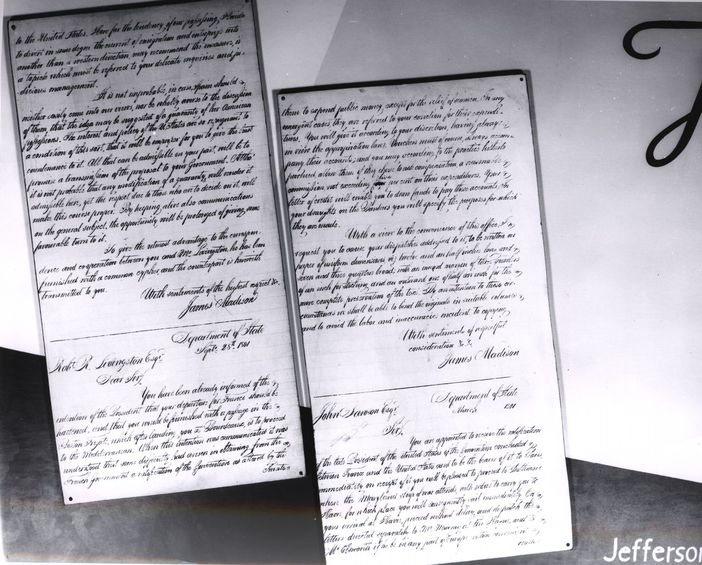 to the United States. How far the tendency of our possessing Florida
to divert in some degree the current of emigration and enterprize into
another than a western direction, may recommend the measure, is
a topic which must be referred to your delicate enquiries and ju-
dicious management.
It is not improbable, in case Spain should
neither easily come into our views, nor be wholly averse to the discussion
of them, that the idea may be suggested of a guaranty of her American
possessions. The interest and policy of the U States are so repugnant to
a condition of this sort, that it will be
countenance to it. All that can be admissible on your part, will be to
promise a transmission of the proposal to your Government. Altho
it is not probable that any modification of a guaranty will render it
admissible here, yet the respect due to those who are to decide on it, will
make this course proper. By keeping alive also communications
on the general subject, the opportunity will be prolonged of giving some
favourable turn to it.
To give the utmost advantage to the correspon-
dence and cooperation between you and Mr. Livingston, he has been
furnished with a common cypher and the counterpart is herewith
transmitted to you.
With sentiments of the highest regard &c.
James Madison
Department of State
Sept. 28th 1801
Robt. R. Livingston Esqr.
Dear Sir,
You have been already informed of the
intention of the President that your departure for France should be
hastened, and that you would be furnished with a passage in the
Boston Frigate, which after landing you in Bourdeaux, is to proceed
to the Mediterranean. When this intention was communicated it was
understood that some difficulty had arisen in obtaining from the
French government a ratification of the Convention as altered by the
Senate
them to expend public money, except for the relief of seamen. In any
emergent cases they are referred to your
You will give it according to your discretion, having always
in view the appropriation laws. Vouchers must of course, always accom-
pany their accounts, and you may according to the practice hitherto
purchased allow them if they choose to ask compensation a reasonable
commission, not exceeding five per cent on their expenditures. Your
letter of credit will enable you to draw funds to pay their accounts. In
your draughts on the Bankers you will specify the purposes for which
they are made.
With a view to the convenience of this office, I
request you to cause your dispatches addressed to it, to be written on
paper of uniform dimensions
of an inch
any complete preservation of the text. By an attention to these cir-
cumstances we shall be able to bind the originals in suitable volumes
and to avoid the labor and inaccuracies incident to copying.
With sentiment of respectful
consideration &c.
James Madison
Department of State
March 1801
John Dawson Esqr.
Sir,
You are appointed to receive the ratification
of the late President of the United States of the Convention concluded
between France and the United States and to be the bearer of it to Paris
immediately on receipt of it you will be pleased to proceed to Baltimore
where the Maryland sloop of war attends, with orders to carry you to
Havre, for which place you will consequently sail immediately. On
your arrival at Havre, proceed without delay, and dispatch the
letters directed
Jefferson